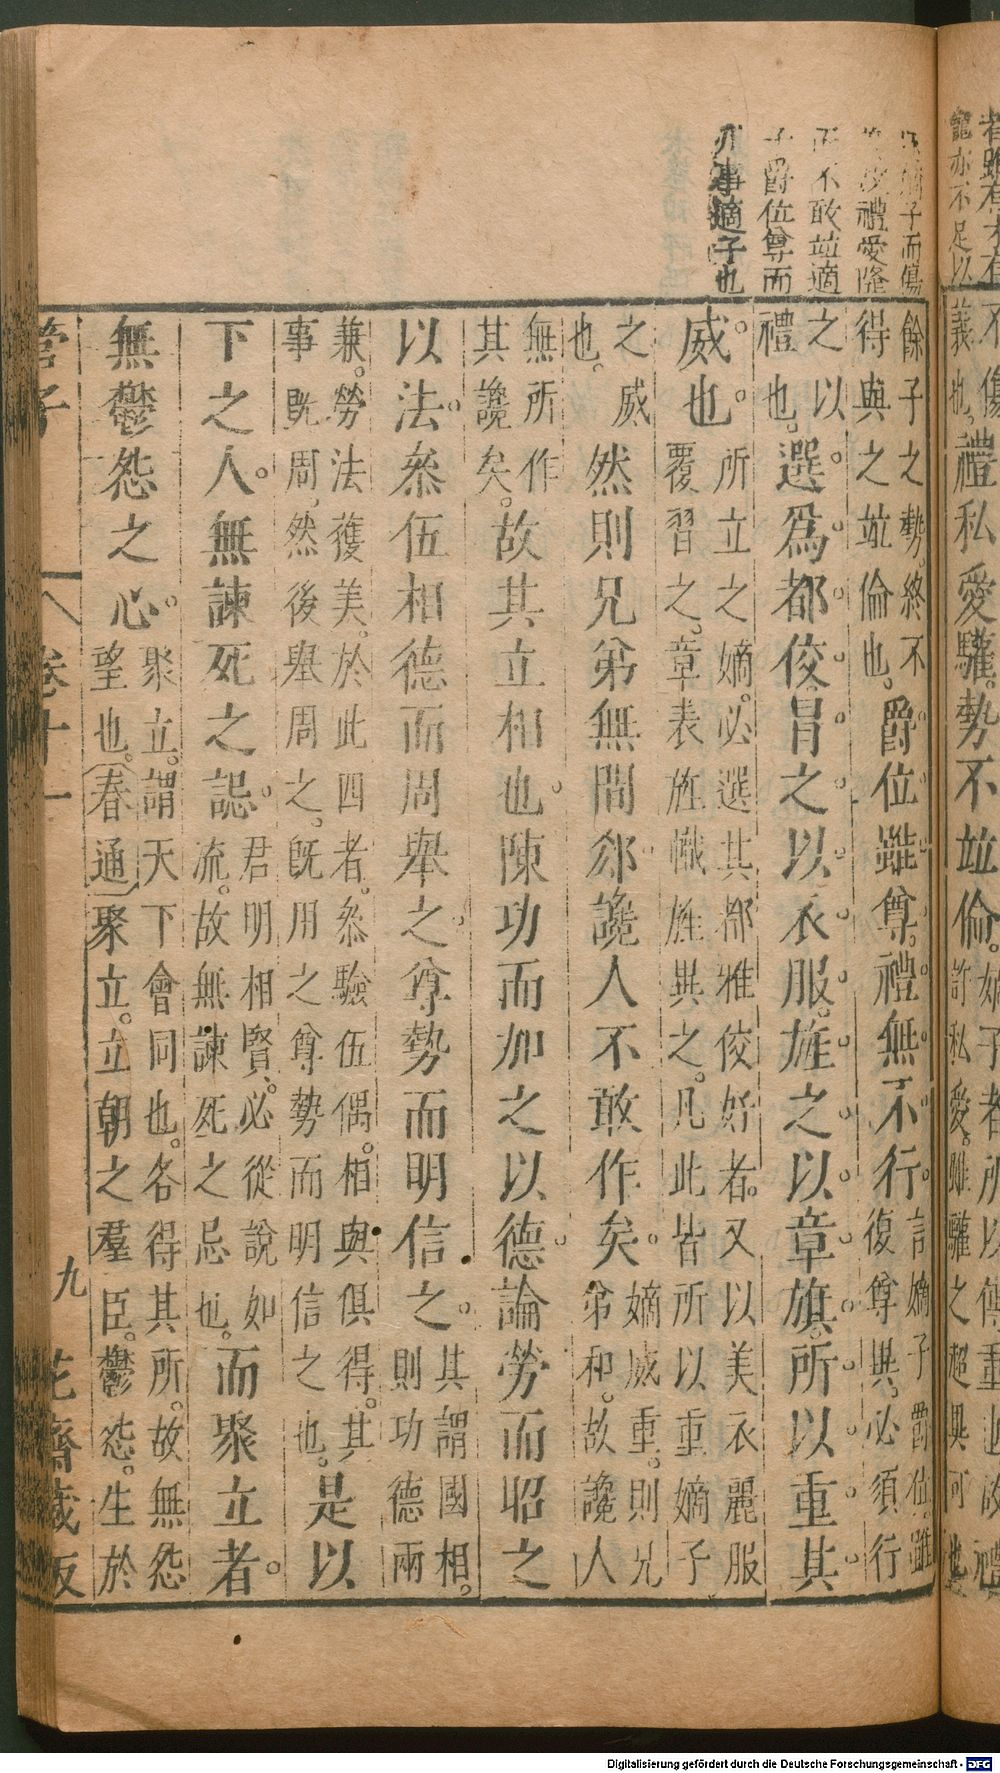 寵亦不足以
不傷
義也。
禮私愛驩。勢不並倫。
許私愛。雖驩之超異可也
嫡子而傷
禮愛隆
而不敢並適
子爵位尊而
事適子也
餘子之勢。終不
得與之並倫也。
爵位雖尊。禮無不行。
言嫡子爵位。雖
復尊異。必須行
之以
禮也。
選爲都佼。冒之以衣服。旌之以章旗。所以重其
威也。
所立之嫡。必選其都雅佼好者。又以美衣麗服
覆習之。章表旌幟旌異之。凡此皆所以重嫡子
之威
也。
然則兄弟無間郄。讒人不敢作矣。
嫡威重。則兄
弟和。故讒人
無所作
其讒矣。
故其立相也。陳功而加之以德。論勞而昭之
以法。叅伍相德而周舉之。尊勢而明信之。
其謂國相。
則功德兩
兼。勞法獲美。於此四者。叅驗伍偶。相與俱得。其
事既周。然後舉周之。既用之尊勢而明信之也。
是以
下之人。無諫死之誋。
君明相賢。必從說如
流。故無諫死之忌也。
而聚立者。
無鬱怨之心。
聚立。謂天下會同也。各得其所。故無怨
望也。春通聚立。立朝之羣臣。鬱怨。生於
管子 卷十一 九 花齋藏板
Digitalisierung gefördert durch die Deutsche Forschungsgemeinschaft - DFG